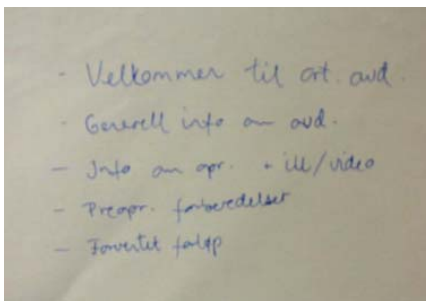 - Velkommer til ort. avd.
- Generell info om avd.
- Info om opr. + ill/video
- Preopr. forberedelser
- Forventet forløp